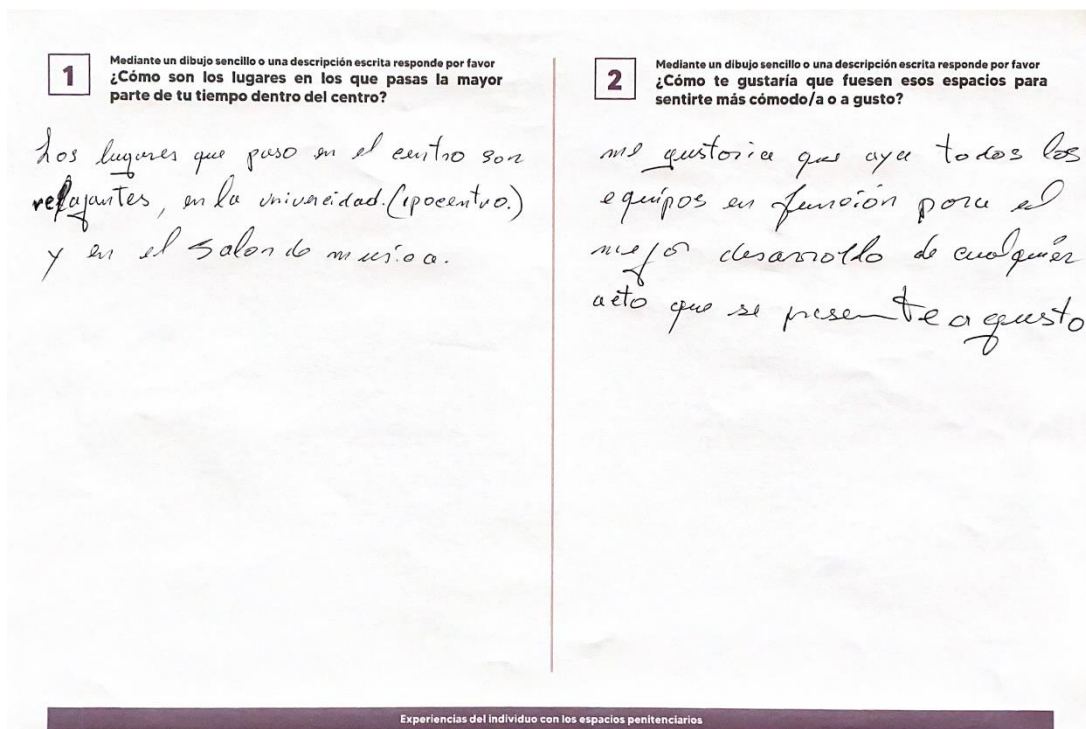 1
Mediante un dibujo sencillo o una descripción escrita responde por favor
¿Cómo son los lugares en los que pasas la mayor
parte de tu tiempo dentro del centro?
Los lugares que paso en el centro son
relajantes, en la univercidad. (ipocentro.)
y en el salon de musica.
2
Mediante un dibujo sencillo o una descripción escrita responde por favor
¿Cómo te gustaría que fuesen esos espacios para
sentirte más cómodo/a o a gusto?
me gustoria que aya todos los
equipos en función para el
mejor desarrollo de cualquier
acto que se presente a gusto
Experiencias del individuo con los espacios penitenciarios